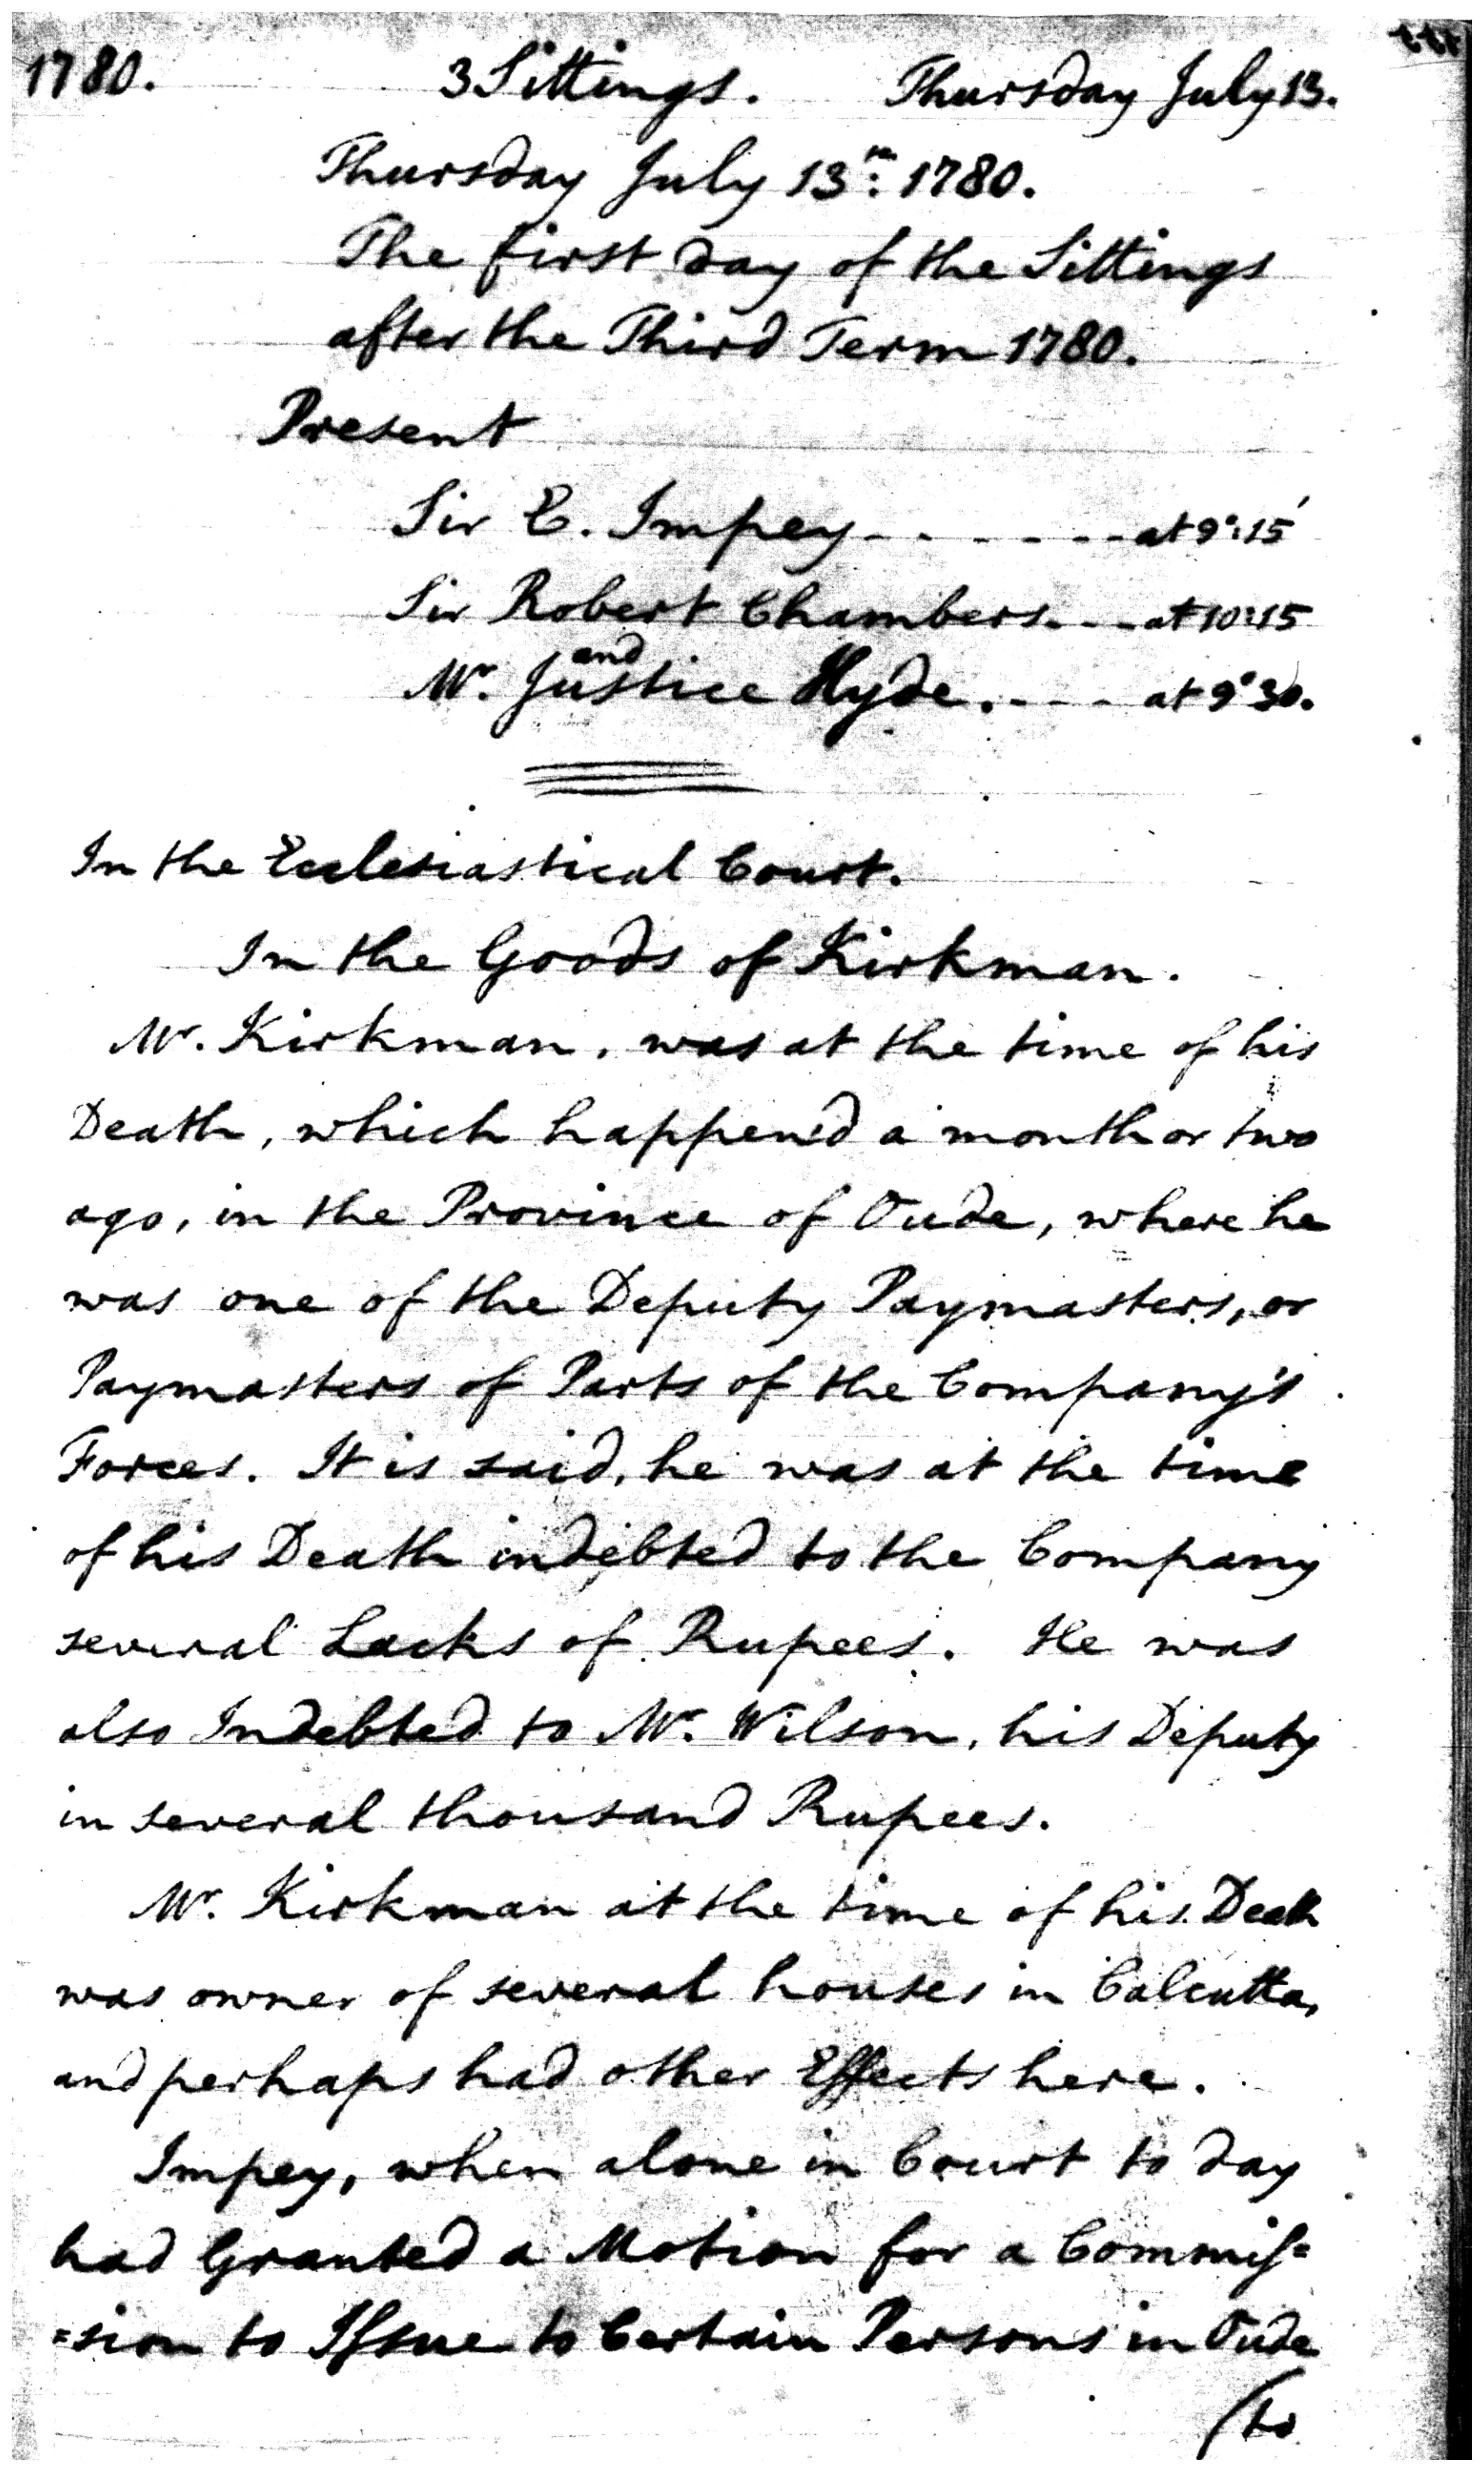 1780. 3 Sittings. Thursday July 13.
Thursday July 13th: 1780.
The first day of the Sittings
after the Third Term 1780.
Present
Sir E. Impey - - - - - - - at 9°:15'
Sir Robert Chambers - - - at 10:15
and
Mr. Justice Hyde. - - - - at 9°30.
In the Ecclesiastical Court.
In the Goods of Kirkman.
Mr. Kirkman, was at the time of his
Death, which happen'd a month or two
ago, in the Province of Oude, where he
was one of the Deputy Paymasters, or
Paymasters of Parts of the Company's
Forces. It is said, he was at the time
of his Death indebted to the Company
several Lacks of Rupees. He was
also Indebted to Mr. Wilson, his Deputy
in several thousand Rupees.
Mr. Kirkman at the time of his Death
was owner of several houses in Calcutta,
and perhaps had other Effects here.
Impey, when alone in Court to day
had Granted a Motion for a Commiſ=
=sion to Iſsue to Certain Persons in Oude
(to